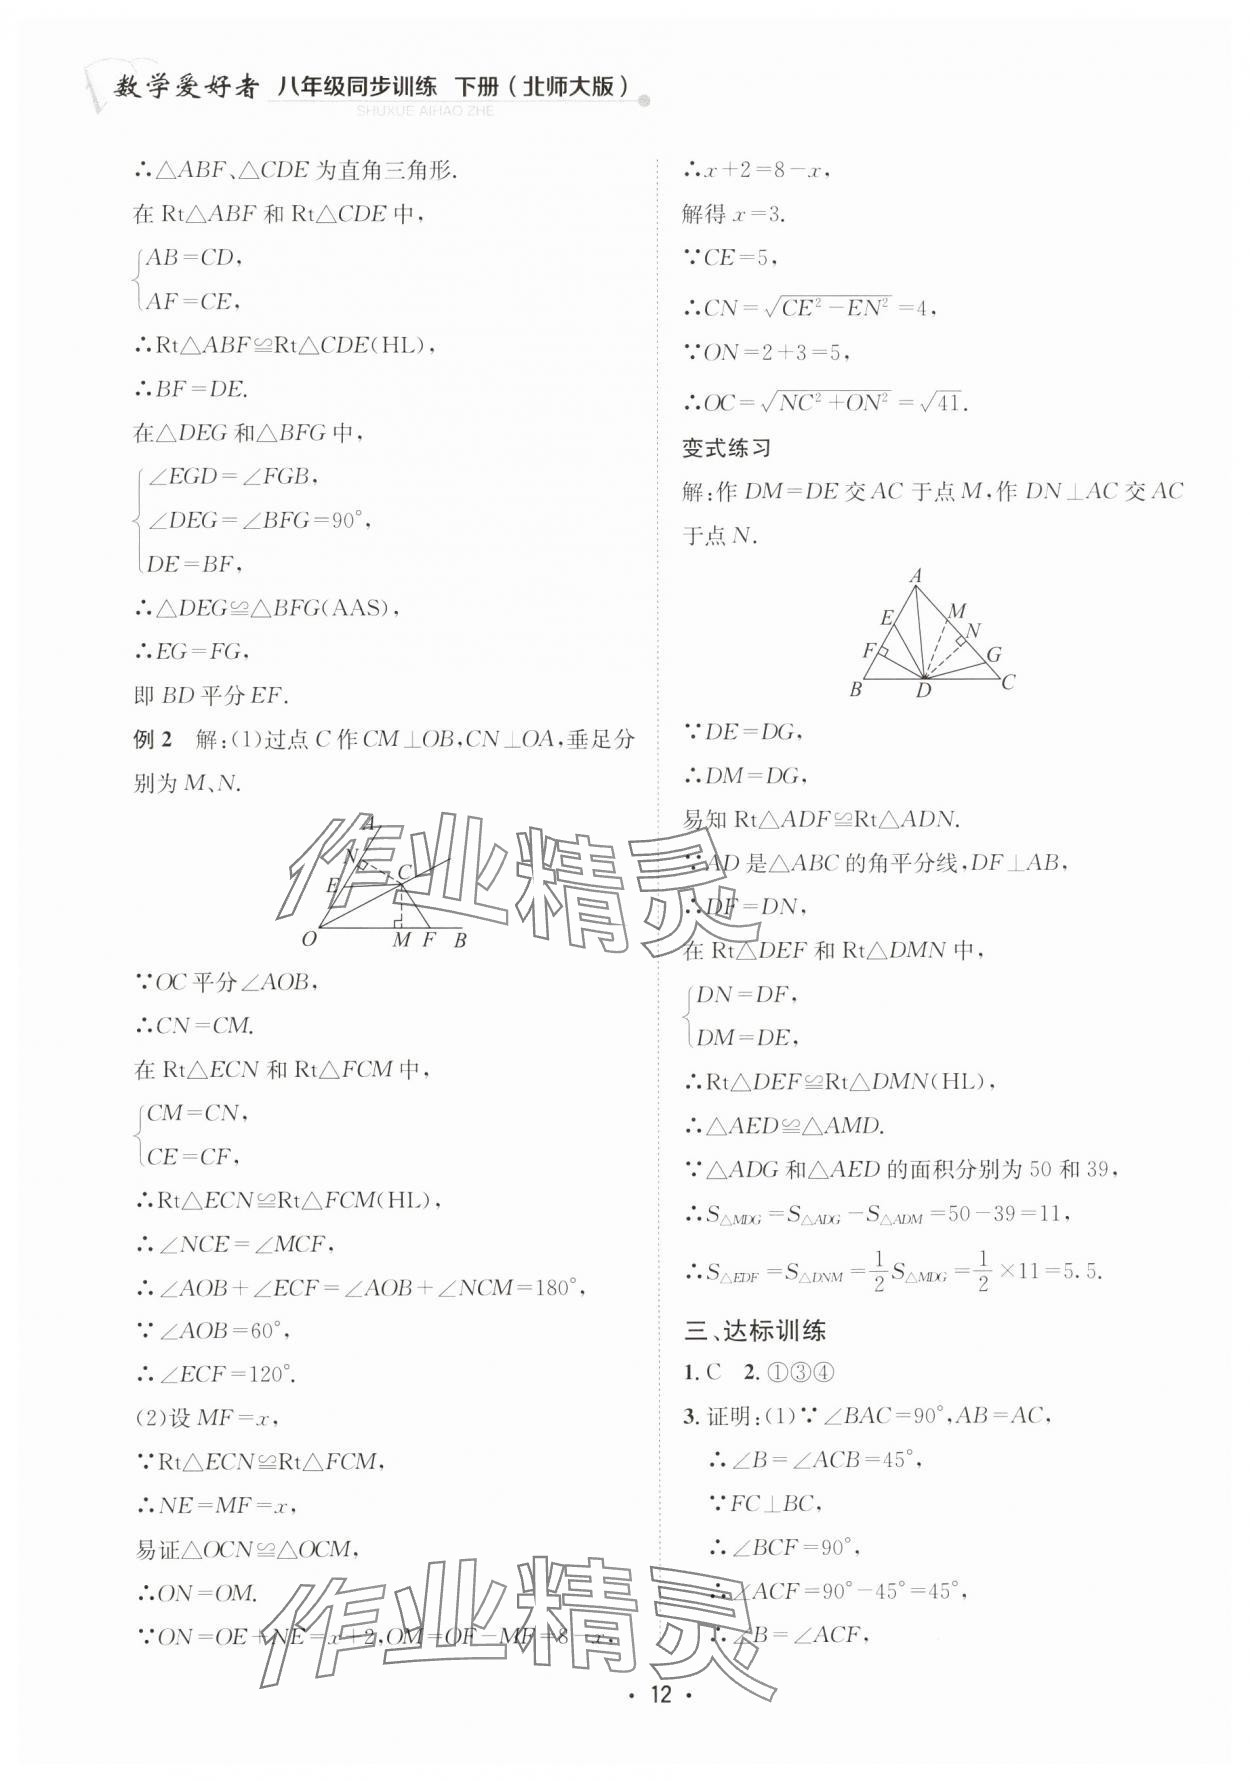 数学爱好者 八年级同步训练 下册(北师大版)
SHUXUE AIHAO ZHE
∴△ABF、△CDE为直角三角形.
在Rt△ABF和Rt△CDE中,
AB=CD,
AF=CE,
∴Rt△ABF≌Rt△CDE(HL),
∴BF=DE.
在△DEG和△BFG中,
∠EGD=∠FGB,
∠DEG=∠BFG=90°,
DE=BF,
∴△DEG≌△BFG(AAS),
∴EG=FG,
即BD平分EF.
例2 解:(1)过点C作CM⊥OB,CN⊥OA,垂足分
别为M、N.
A
N
C
E
O
M F B
∵OC平分∠AOB,
∴CN=CM.
在Rt△ECN和Rt△FCM中,
CM=CN,
CE=CF,
∴Rt△ECN≌Rt△FCM(HL),
∴∠NCE=∠MCF,
∴∠AOB+∠ECF=∠AOB+∠NCM=180°,
∵∠AOB=60°,
∴∠ECF=120°.
(2)设MF=x,
∵Rt△ECN≌Rt△FCM,
∴NE=MF=x,
易证△OCN≌△OCM,
∴ON=OM.
∵ON=OE+NE=x+2,OM=OF-MF=8-x,
∴x+2=8-x,
解得x=3.
∵CE=5,
∴CN=√(CE²-EN²)=4,
∵ON=2+3=5,
∴OC=√(NC²+ON²)=√41.
变式练习
解:作DM=DE交AC于点M,作DN⊥AC交AC
于点N.
A
M
E
N
F
G
B D C
∵DE=DG,
∴DM=DG,
易知Rt△ADF≌Rt△ADN.
∵AD是△ABC的角平分线,DF⊥AB,
∴DF=DN,
在Rt△DEF和Rt△DMN中,
DN=DF,
DM=DE,
∴Rt△DEF≌Rt△DMN(HL),
∴△AED≌△AMD.
∵△ADG和△AED的面积分别为50和39,
∴S△MDG=S△ADG-S△ADM=50-39=11,
∴S△EDF=S△DNM=1/2S△MDG=1/2×11=5.5.
三、达标训练
1. C 2. ①③④
3. 证明:(1)∵∠BAC=90°,AB=AC,
∴∠B=∠ACB=45°,
∵FC⊥BC,
∴∠BCF=90°,
∴∠ACF=90°-45°=45°,
∴∠B=∠ACF,
作业精灵
作业精灵
· 12 ·